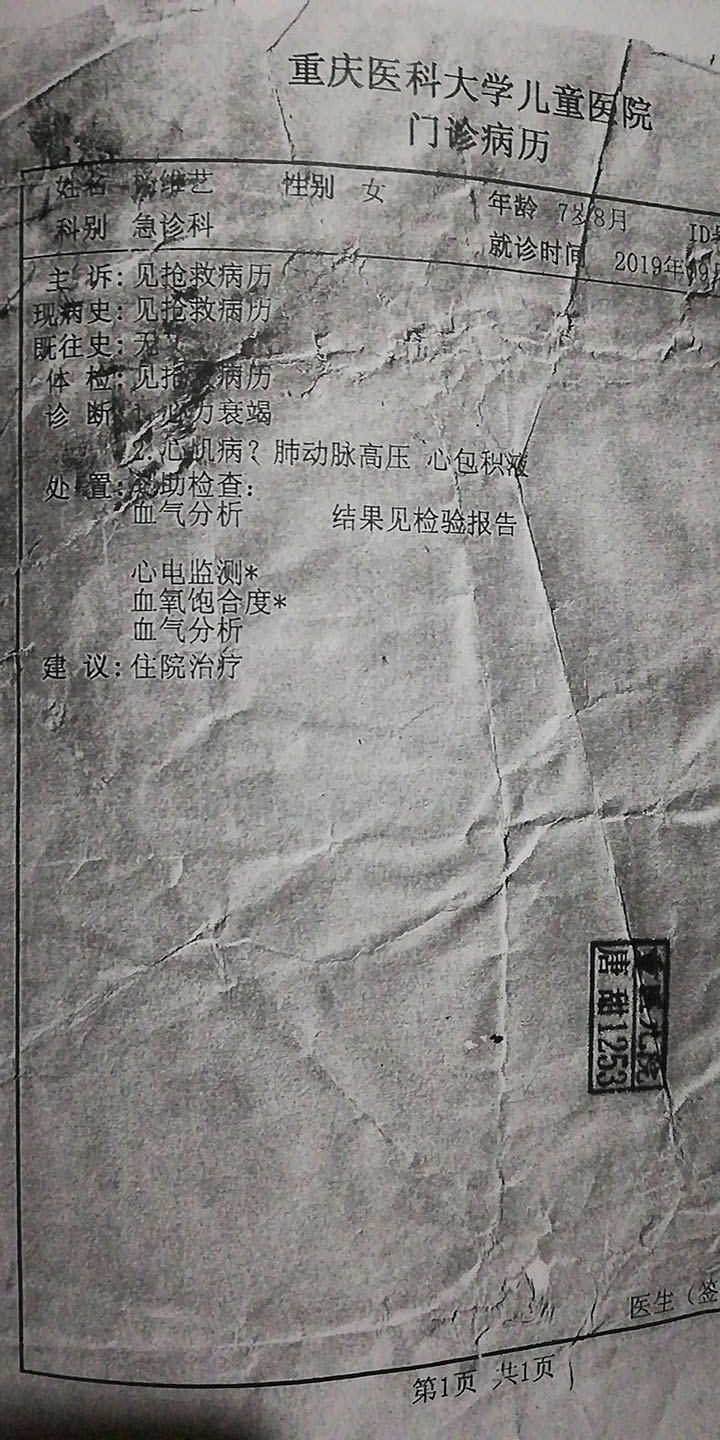 重庆医科大学儿童医院
门诊病历
姓名 杨维艺 性别 女 年龄 7岁8月 ID
科别 急诊科 就诊时间 2019年09月
主 诉: 见抢救病历
现病史: 见抢救病历
既往史: 无
体 检: 见抢救病历
诊 断: 1.心力衰竭
2.心肌病? 肺动脉高压 心包积液
处 置: 辅助检查:
血气分析 结果见检验报告
心电监测*
血氧饱合度*
血气分析
建 议: 住院治疗
重医儿院
唐甜1253
医生(签
第1页 共1页